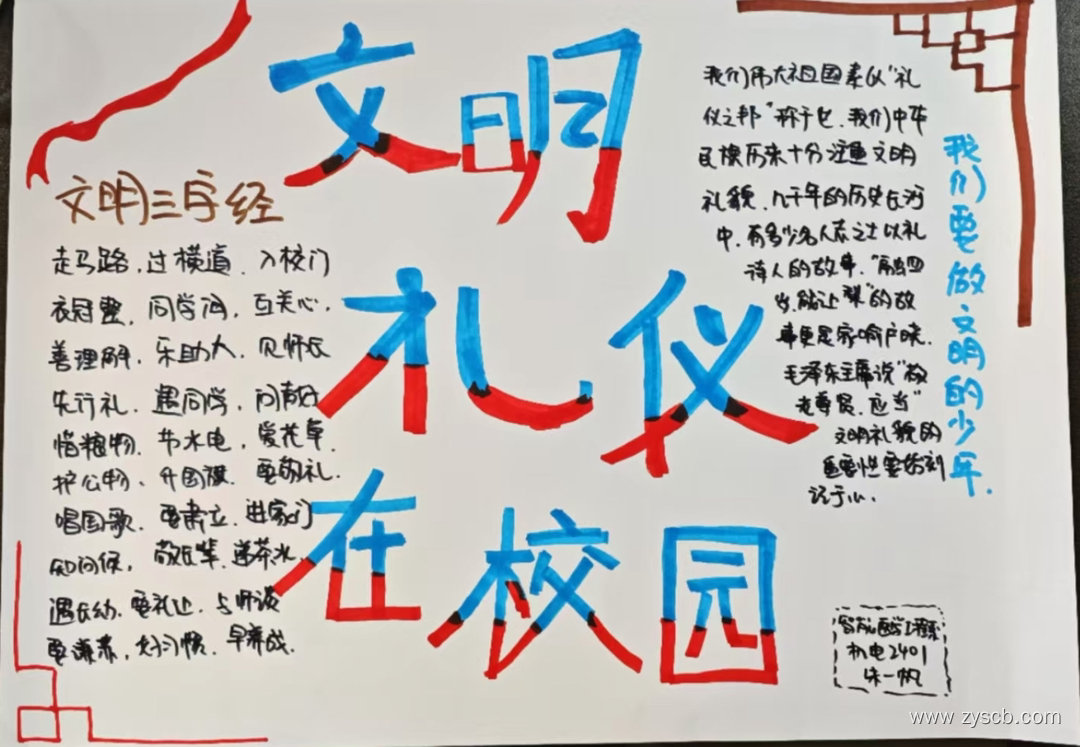 文明
礼仪
在校园
文明三字经
走马路、过横道、入校门
衣冠整、同学间、互关心，
善理解、乐助人、见师长
先行礼、遇同学、问声好
惜粮物、节水电、爱花草、
护公物、升国旗、要敬礼、
唱国歌、要肃立、进家门
知问候，敬长辈、递茶水
遇长幼、要礼让、与师谈
要谦恭，好习惯、早养成、
我们伟大祖国素以“礼
仪之邦”称于世、我们中华
民族历来十分注重文明
礼貌、几千年的历史长河
中、有多少名人志士以礼
待人的故事、“融四
岁，能让梨”的故
事更是家喻户晓、
毛泽东主席说“
老尊贤、应当”
文明礼貌的
重要性要刻
记于心、
我们要做文明的少年、
机电2401
朱一帆
www.zyscb.com